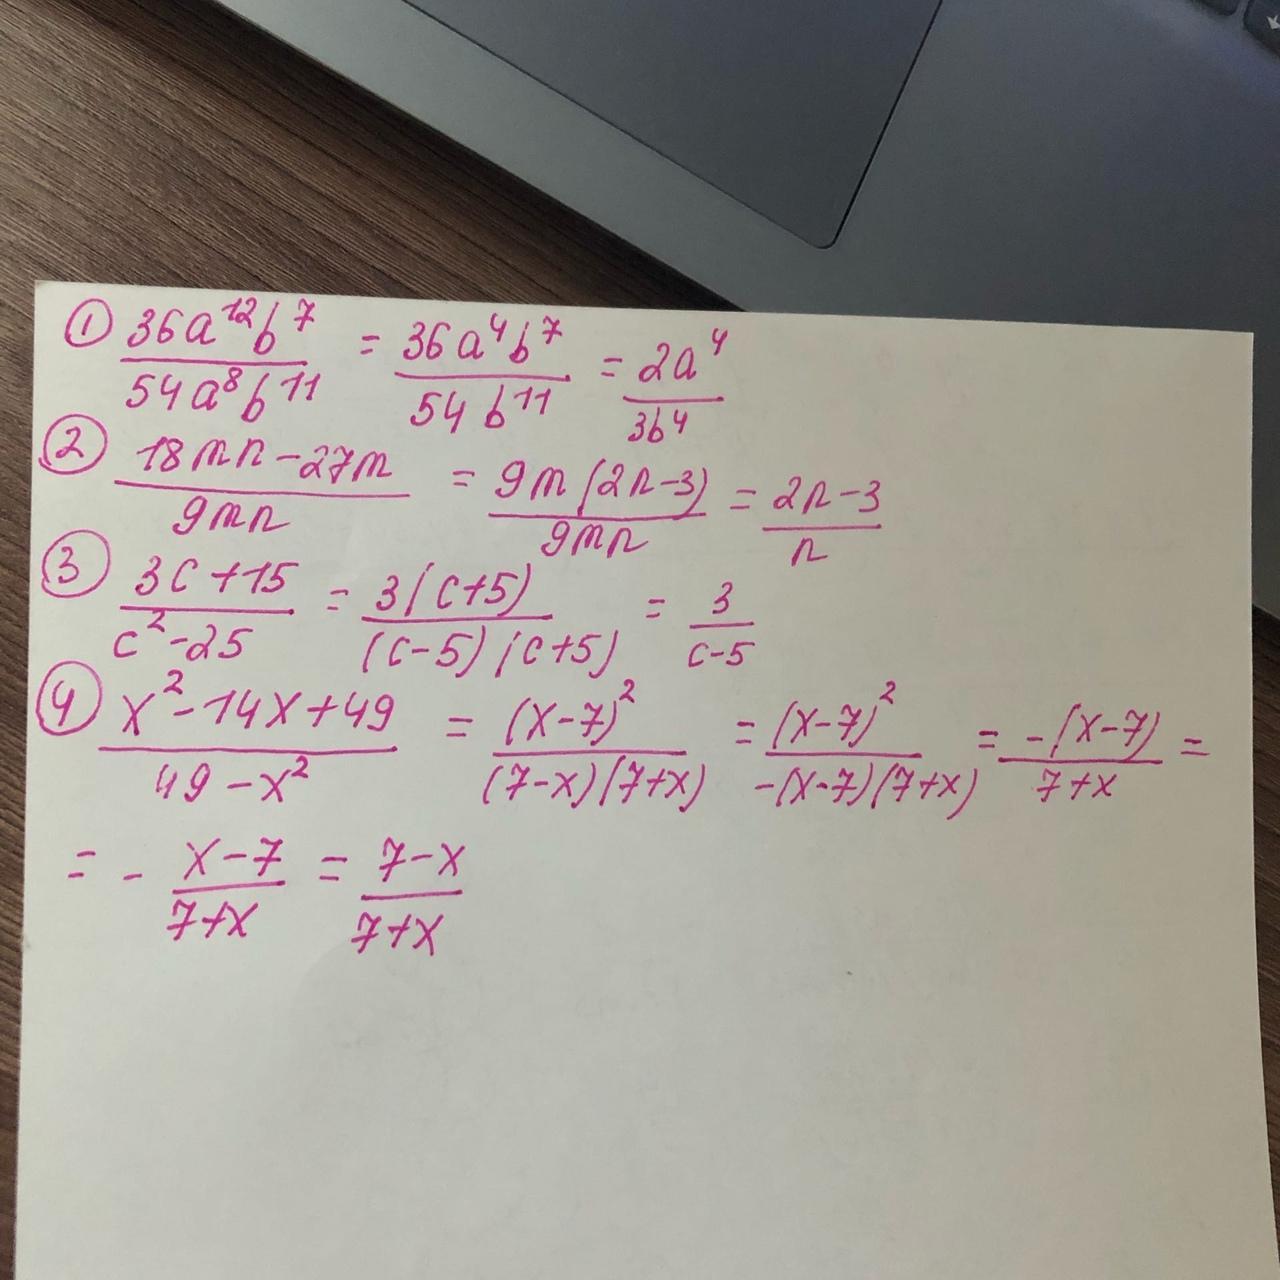 ① 36a¹²b⁷/54a⁸b¹¹ = 36a⁴b⁷/54b¹¹ = 2a⁴/3b⁴
② 18mn-27m/9mn = 9m(2n-3)/9mn = 2n-3/n
③ 3c+15/c²-25 = 3(c+5)/(c-5)(c+5) = 3/c-5
④ x²-14x+49/49-x² = (x-7)²/(7-x)(7+x) = (x-7)²/-(x-7)(7+x) = -(x-7)/7+x =
= - x-7/7+x = 7-x/7+x